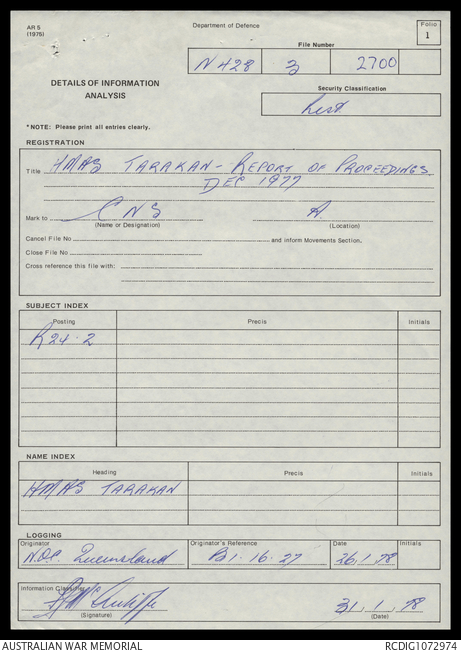 AR 5
(1975)
Department of Defence
Folio
1
File Number
N428 3 2700
DETAILS OF INFORMATION
ANALYSIS
Security Classification
Rest.
*NOTE: Please print all entries clearly.
REGISTRATION
Title HMAS TARAKAN - REPORT OF PROCEEDINGS.
DEC 1977
Mark to CNS A.
(Name or Designation) (Location)
Cancel File No and inform Movements Section.
Close File No
Cross reference this file with:
SUBJECT INDEX
Posting Precis Initials
R24.2
NAME INDEX
Heading Precis Initials
HMAS TARAKAN
LOGGING
Originator Originator's Reference Date Initials
N.O.C. Queensland B1.16.27 26.1.78
Information Classifier
(Signature)
31.1.78
(Date)
AUSTRALIAN WAR MEMORIAL RCDIG1072974